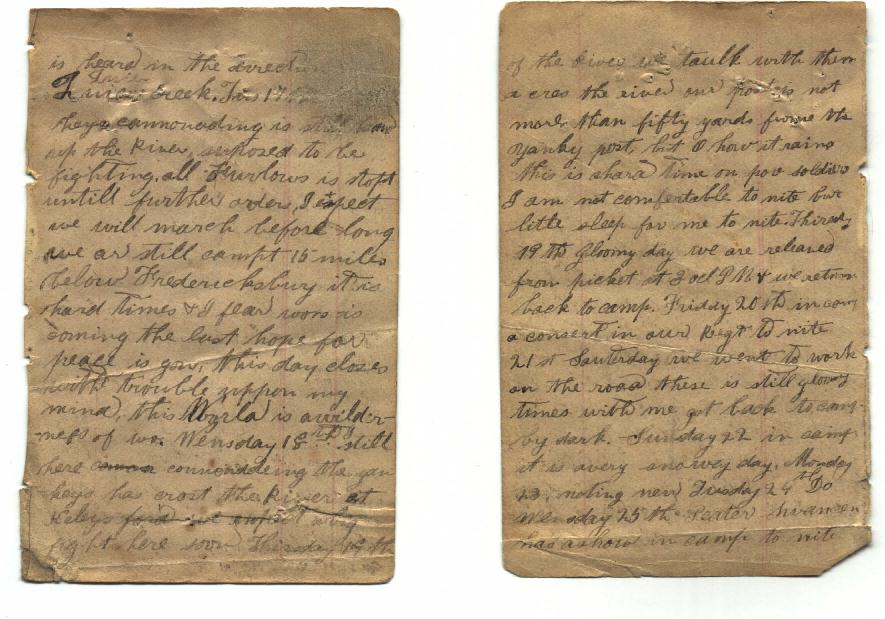 is heard in the direction
creek. In 17th
they cannonading is still
up the River, supposed to be
fighting. all Furlows is stopt
untill further orders, I expect
we will march before long
we ar still campt 15 miles
below Fredericksburg it is
hard times & I fear wors is
coming the last hope for
peace is gon, this day closes
with trouble uppon my
mind, this World is a wilder-
ness of wo. Wensday 18th still
here cannonadeing the yan
keys has crost the River at
Keleys ford we expect
fight here soon Thirsday 19th
of the River we taulk with them
a cros the river our post is not
more than fifty yards frome the
Yanky post, but O how it rains
this is a hard time on poor soldiers
I am not comfortable to nite but
little sleep for me to nite. Thirsdy
19th Gloomy day we are releaved
from picket at 3 ocl PM & we return
back to camp. Friday 20th in camp
a consert in our Regt to nite
21st Sauterday we went to work
on the road these is still gloomy
times with me got back to camp
by dark. Sunday 22 in camp
it is a very snowey day. Monday
23, noting new Tusday 24th Do
Wensday 25th
has a show in camp to nite